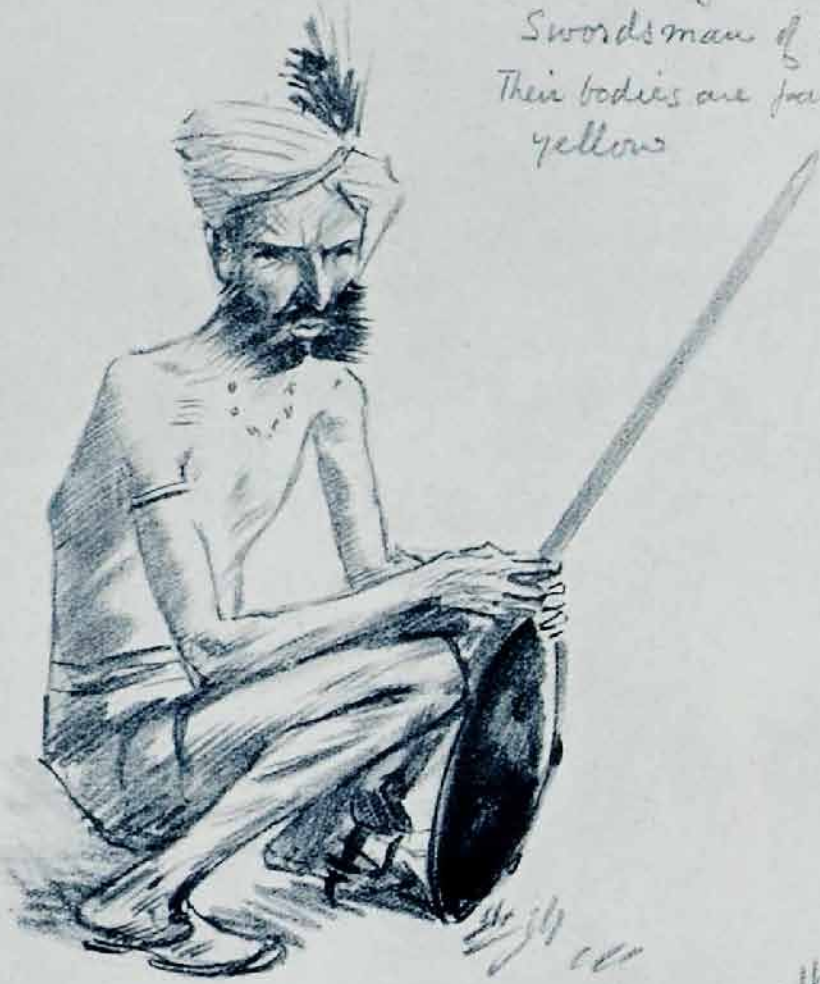 Swordsman of
Their bodies are
yellow